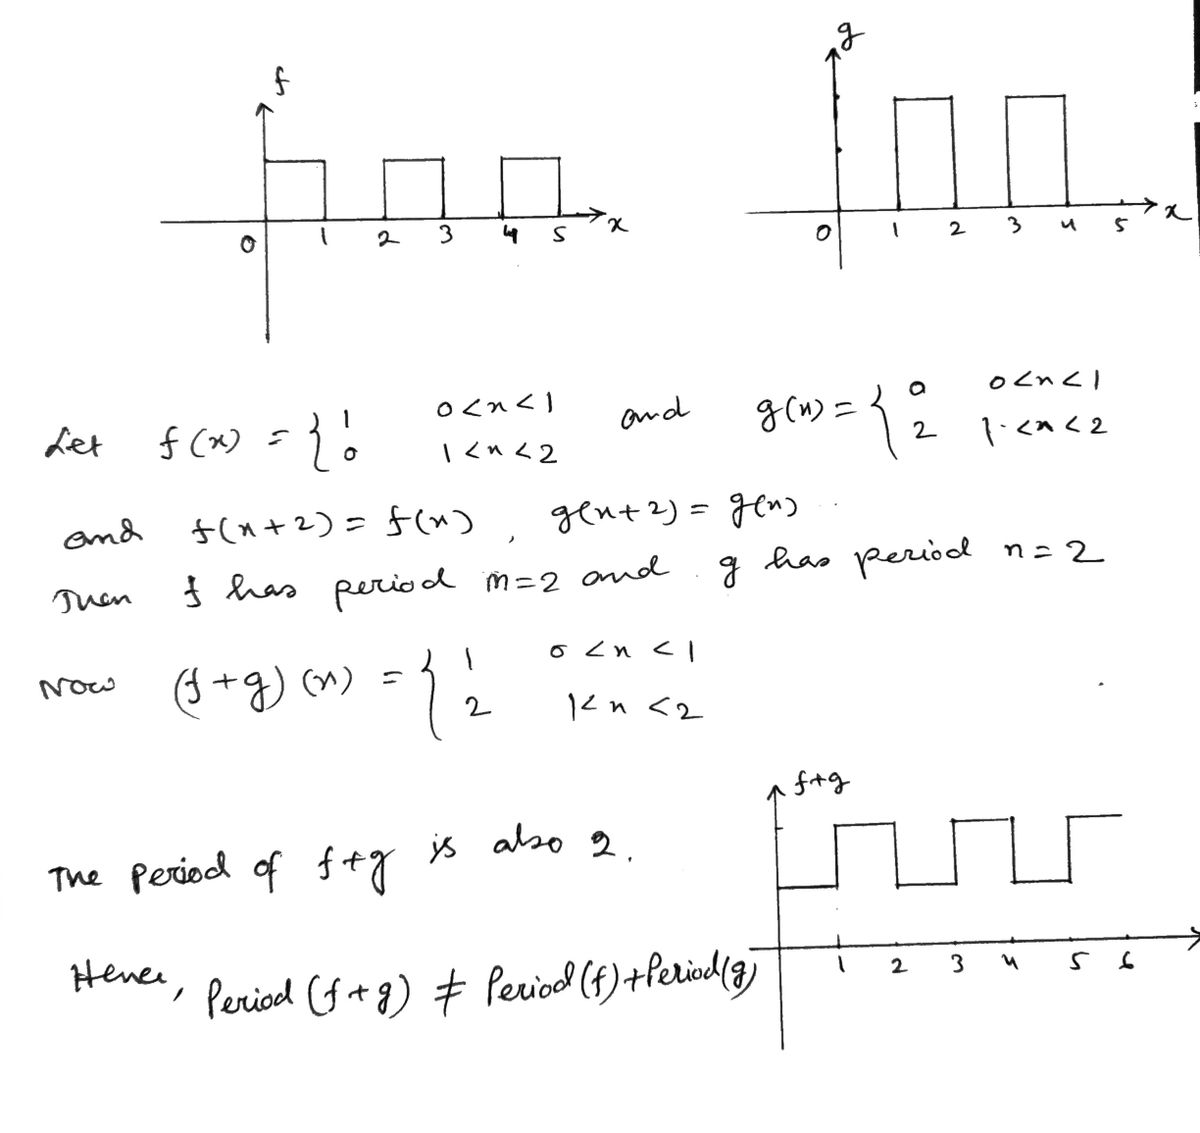 f
g
0 1 2 3 4 5 x
0 1 2 3 4 5 x
Let f(x) = { 1 0<x<1 and g(x) = { 0 0<x<1
0 1<x<2 2 1<x<2
and f(x+2) = f(x), g(x+2) = g(x).
Then f has period m=2 and g has period n=2
Now (f+g)(x) = { 1 0<x<1
2 1<x<2
f+g
The period of f+g is also 2.
1 2 3 4 5 6
Hence, Period(f+g) ≠ Period(f)+Period(g)